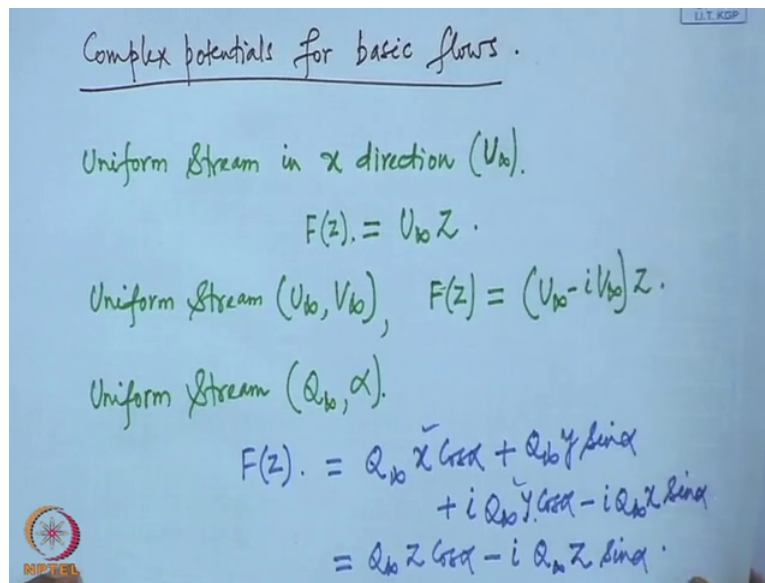 I.I.T. KGP
Complex potentials for basic flows.
Uniform Stream in x direction (U∞).
F(z). = U∞ Z.
Uniform Stream (U∞, V∞), F(z) = (U∞ - i V∞) Z.
Uniform Stream (Q∞, α).
F(z). = Q∞ x Cosα + Q∞ y Sinα
+ i Q∞ y. Cosα - i Q∞ x Sinα
= Q∞ Z Cosα - i Q∞ Z Sinα.
NPTEL